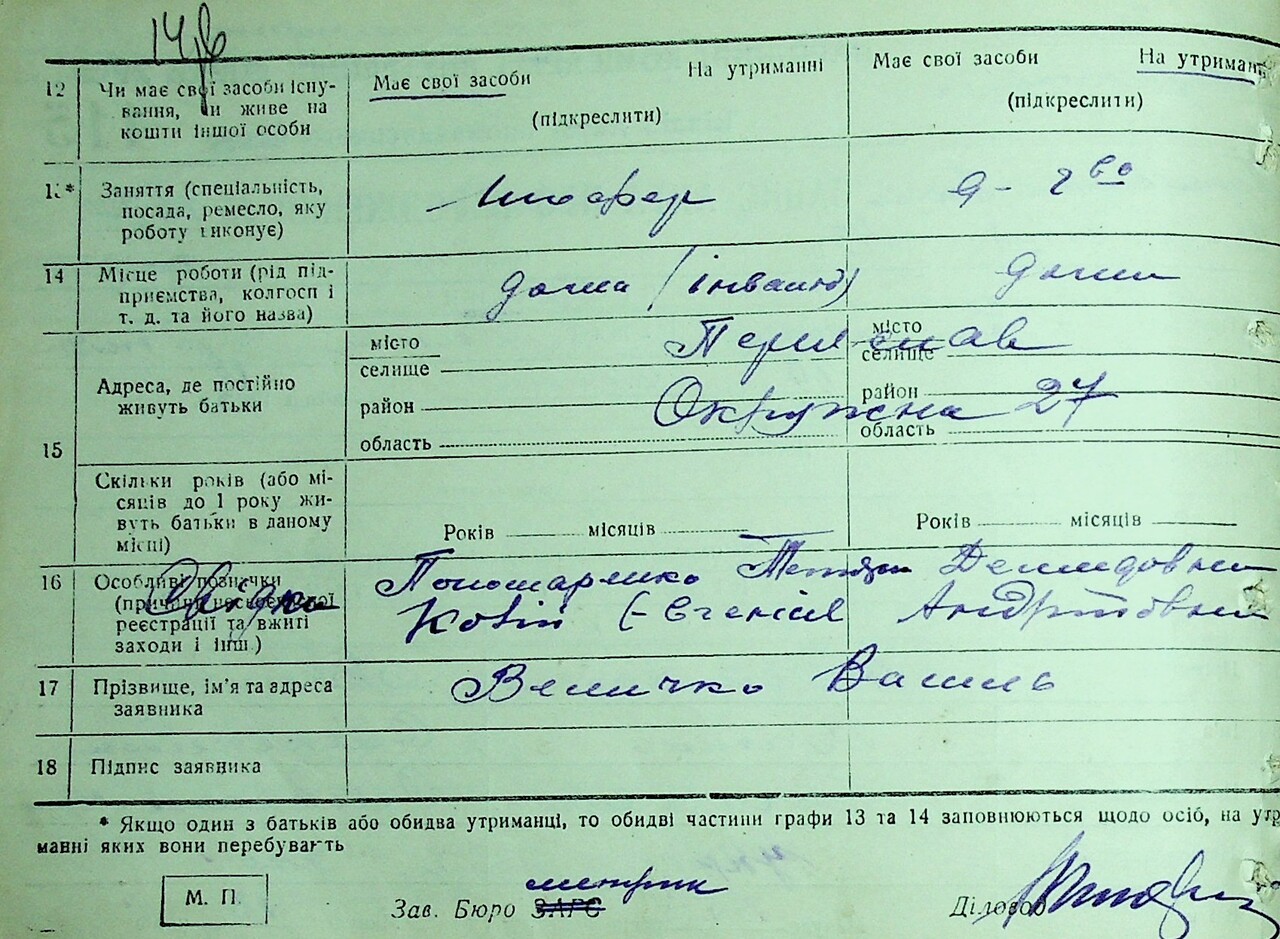 12 Чи має свої засоби існу-
вання, чи живе на
кошти іншої особи
Має свої засоби На утриманні
(підкреслити)
Має свої засоби На утриман
(підкреслити)
13* Заняття (спеціальність,
посада, ремесло, яку
роботу виконує)
шофер
д-г во
14 Місце роботи (рід під-
приємства, колгосп і
т. д. та його назва)
дома (інвалід)
дома
15 Адреса, де постійно
живуть батьки
місто
селище
район
область
місто
селище
район
область
Переяслав
Окружна 27
Скільки років (або мі-
сяців до 1 року жи-
вуть батьки в даному
місці)
Років місяців
Років місяців
16 Особливі позначки
(причини несвоєчасної
реєстрації та вжиті
заходи і інш.)
Свідки
Пономаренко Тетяна Демидовна
Євгенія Андріївна
17 Прізвище, ім'я та адреса
заявника
Величко Василь
18 Підпис заявника
* Якщо один з батьків або обидва утриманці, то обидві частини графи 13 та 14 заповнюються щодо осіб, на утр
манні яких вони перебувать
М. П.
метрик
Зав. Бюро ЗАГС
Діловод